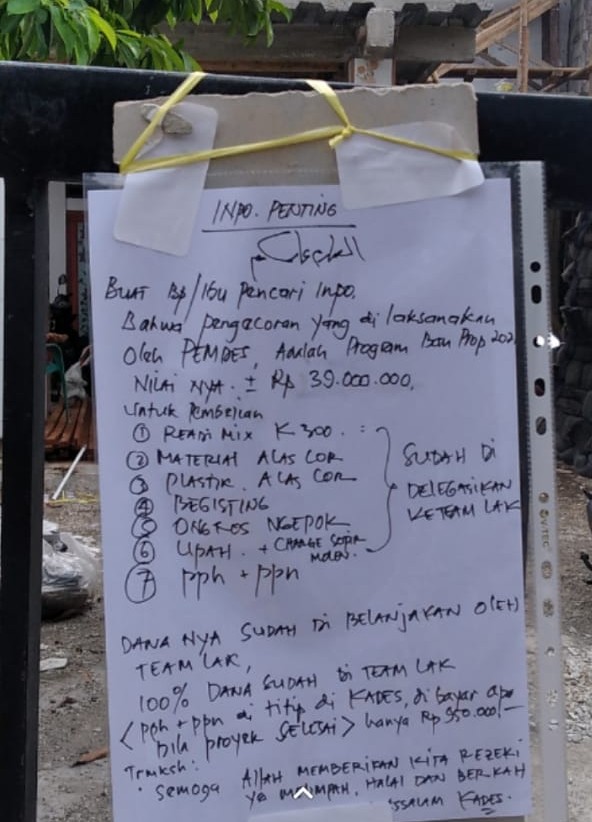 INPO. PENTING
BUAT Bp/Ibu Pencari Inpo.
Bahwa pengecoran yang di laksanakan
Oleh PEMDES, Adalah Program Ban Prop 202
NILAI NYA. ± Rp 39.000.000,
untuk Pembelian
① READI MIX K300. :
② MATERIAL ALAS COR
③ PLASTIK. ALAS COR
④ BEGISTING
⑤ ONGKOS NGEPOK
⑥ UPAH. + CHARGE SOPIR
MOLEN.
⑦ pph + ppn
SUDAH DI
DELEGASIKAN
KETEAM LAK
DANA NYA SUDAH DI BELANJAKAN OLEH
TEAM LAK,
100% DANA SUDAH DI TEAM LAK
< pph + ppn di titip di KADES, di bayar apa
bila proyek SELESAI > hanya Rp 950.000/-
Trmksh:
Semoga Allah MEMBERIKAN KITA REZEKI
yg MELIMPAH, HALAL DAN BERKAH
SSALAM KADES.
VTEC